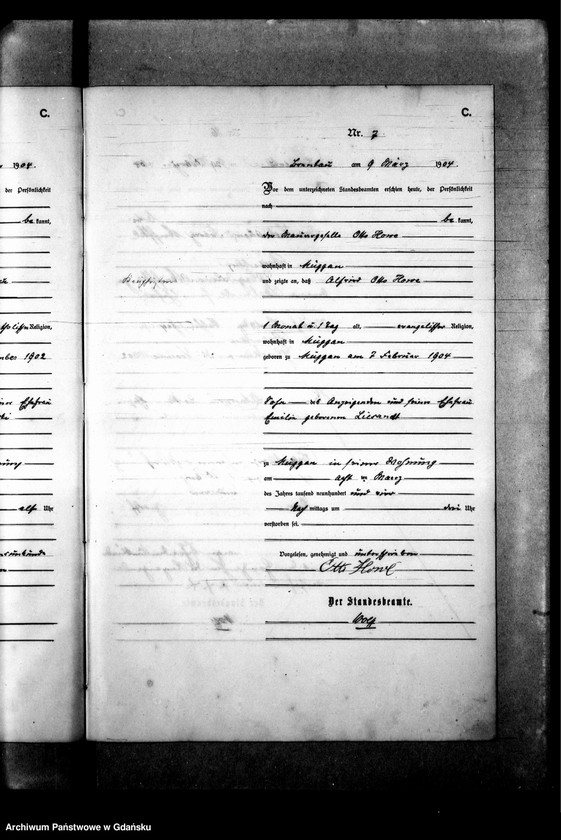 C.
1904.
der Persönlichkeit
be kannt,
Religion,
1902
Ehefrau
Uhr
C.
Nr. 7
am 9 März 1904.
Vor dem unterzeichneten Standesbeamten erschien heute, der Persönlichkeit
nach
be kannt,
der Maurergeselle Otto Howe
wohnhaft in Müggau
und zeigte an, daß Alfred Otto Howe
1 Monat u. 1 Tag alt, evangelischer Religion,
wohnhaft in Müggau
geboren zu Müggau am 7 Februar 1904
Sohn des Anzeigenden und seiner Ehefrau
Emilie geborenen
zu Müggau in seiner Wohnung
am acht ten März
des Jahres tausend neunhundert und vier
Nach mittags um drei Uhr
verstorben sei.
Vorgelesen, genehmigt und unterschrieben
Otto Howe
Der Standesbeamte.
Wolf
Archiwum Państwowe w Gdańsku